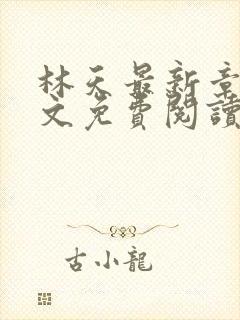 林天最新章
文免費閱讀
古小龍